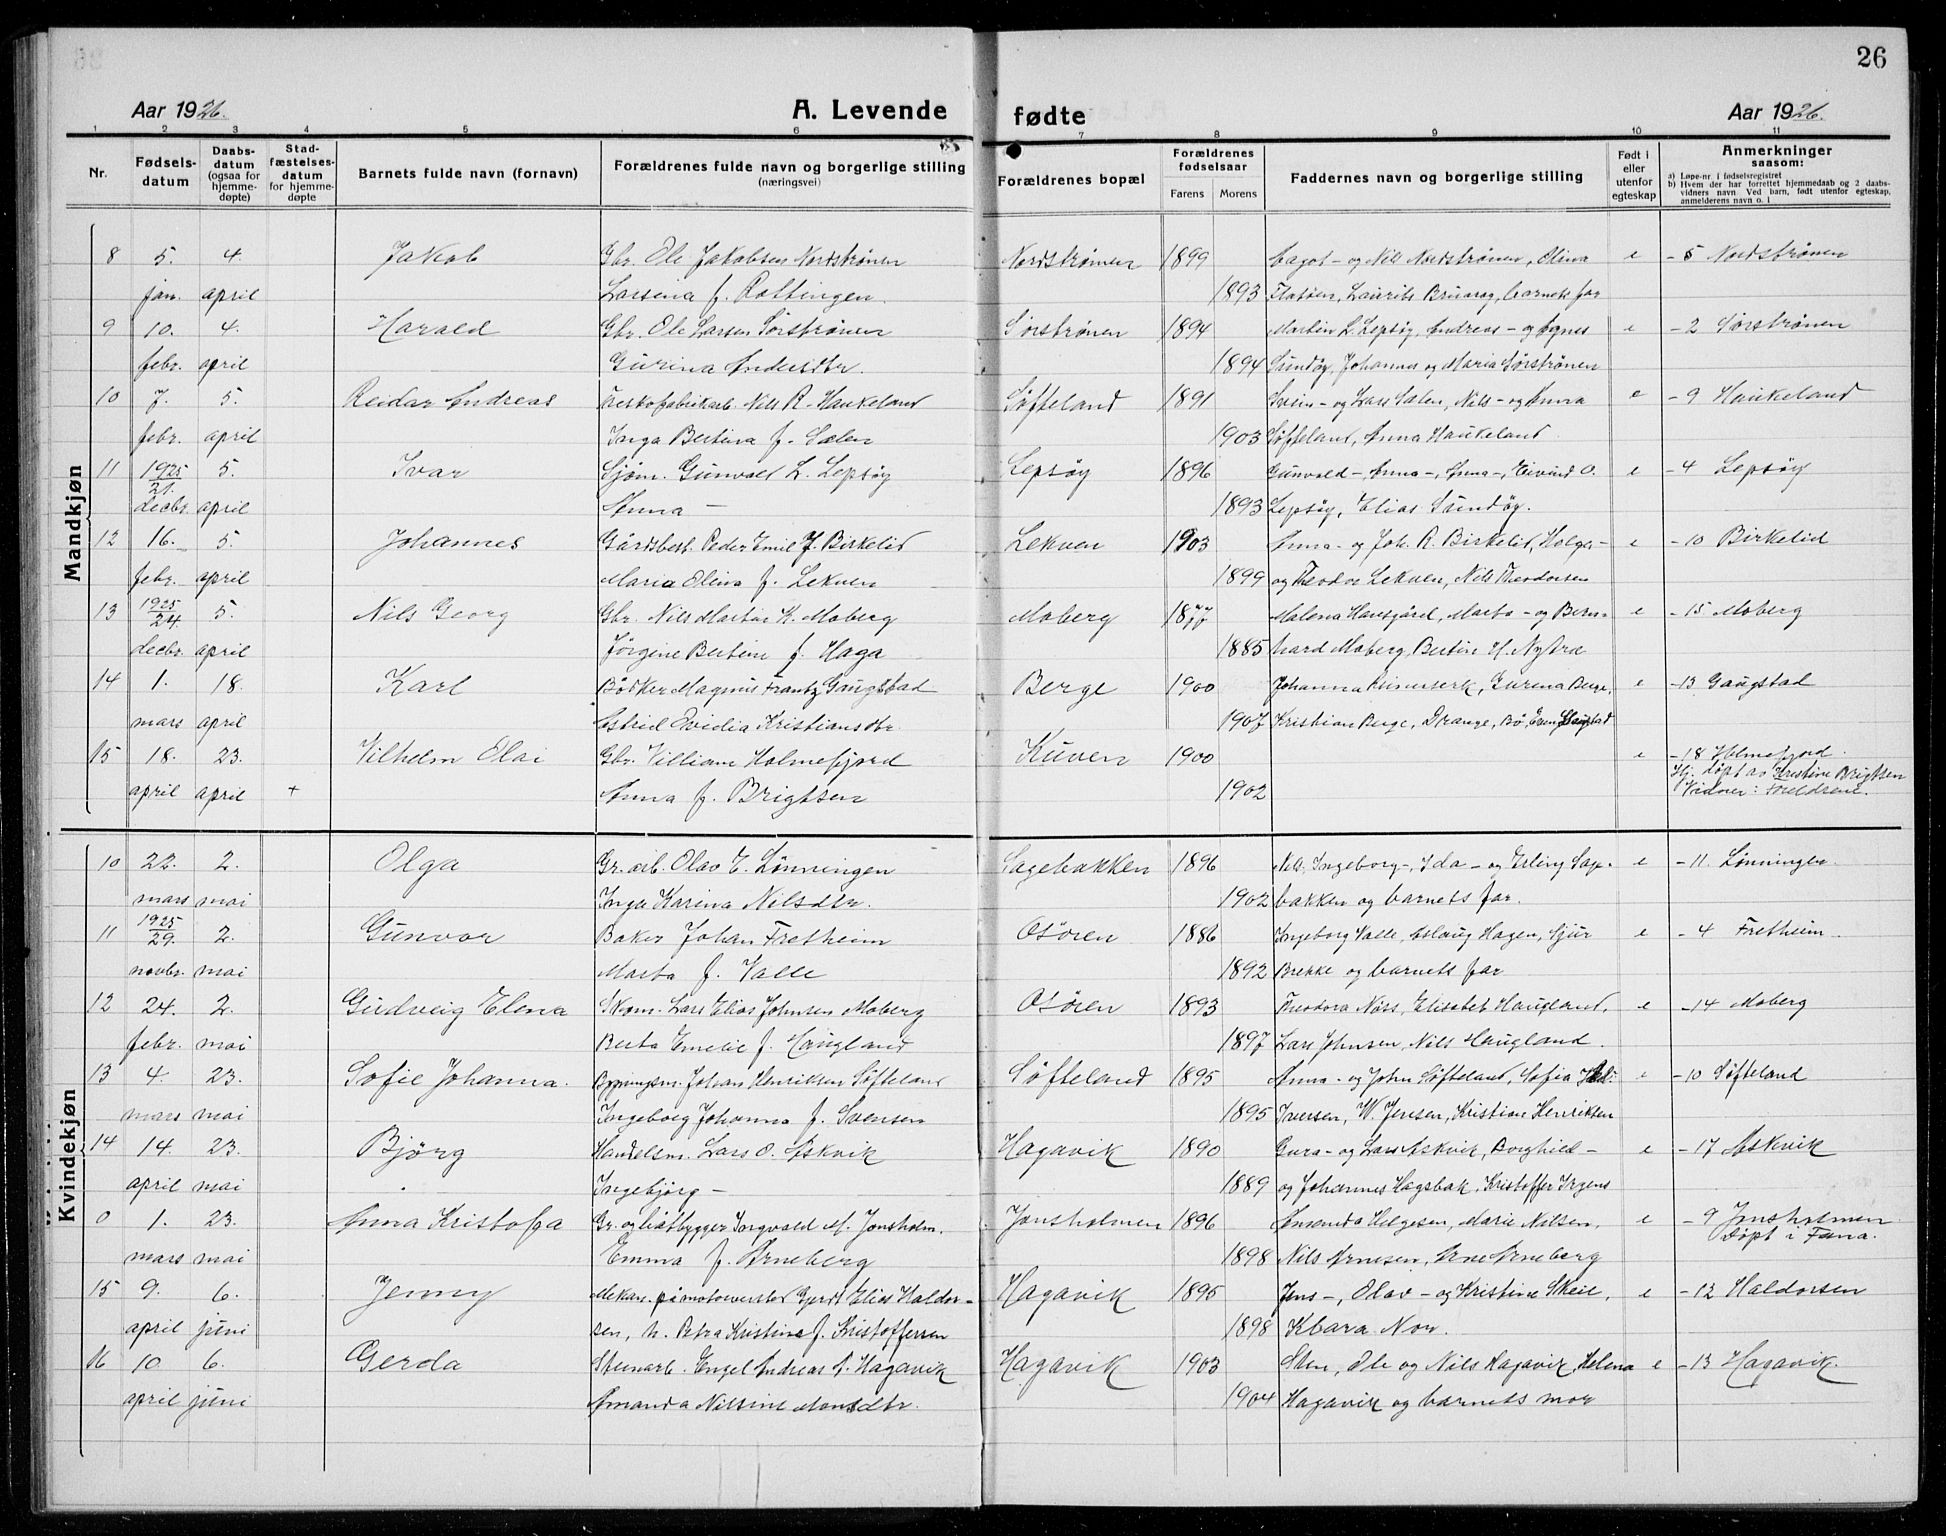 26
Aar 1926. A. Levende fødte Aar 1926.
1 2 3 4 5 6 7 8 9 10 11
Nr. Fødsels-datum Daabs-datum (ogsaa for hjemme-døpte) Stad-fæstelses-datum for hjemme-døpte Barnets fulde navn (fornavn) Forældrenes fulde navn og borgerlige stilling (næringsvei) Forældrenes bopæl Forældrenes fødselsaar Farens Morens Faddernes navn og borgerlige stilling Født i eller utenfor egteskap Anmerkninger saasom:
a) Løpe-nr. i fødselsregistret
b) Hvem der har forrettet hjemmedaab og 2 daabs-vidners navn Ved barn, født utenfor egteskap, anmelderens navn o. l
Mandkjøn
8 5. 4. Jakob Gbr. Ole Jakobsen Nordstrønen Nordstrønen 1899 og Nils Nordstrønen, Olina e - 5 Nordstrønen
jan. april Larsina f. Røttingen 1893 Flatøen, Laurits Bruarøy, barnets far
9 10. 4. Harald Gbr. Ole Larsen Sørstrønen Sørstrønen 1894 Martin L. Lepsøy, Andreas - og Agnes e - 2 Sørstrønen
febr. april Gurina Andersdtr. 1894 Sundøy, Johannes og Maria Sørstrønen
10 7. 5. Reidar Andreas Nils R. Haukeland Søfteland 1891 Svein - og Lars Sælen, Nils - og Anna e - 9 Haukeland
febr. april Inga Bertina f. Sælen 1903 Søfteland, Anna Haukeland
11 1925 21. 5. Ivar Sjøm. Gunvald L. Lepsøy Lepsøy 1896 Gunvald -, Anna -, Anna -, Eivind O. e - 4 Lepsøy
decbr. april Anna - 1893 Lepsøy, Elias Sundøy.
12 16. 5. Johannes Gårdsbest. Peder Emil J. Birkelid Lekven 1903 Anna - og Joh. R. Birkelid, Holga - e - 10 Birkelid
febr. april Maria Olina f. Lekven 1899 og Theodor Lekven, Nils Theodorsen
13 1925 24. 5. Nils Georg Gbr. Nils Martin K. Moberg Moberg Malena Hansgård, Marta - og Bern- e - 15 Moberg
decbr. april Jørgine Bertine f. Haga 1885 hard Moberg, Bertine H. Nytræ
14 1. 18. Karl Bødker Magnus Frantz Gaugstad Berge 1900 Johanna Gurina Berge, e - 13 Gaugstad
mars april Astrid Ovidia Kristiansdtr. 1907 Kristian Berge, Drange, Bø,
15 18. 23. Vilhelm Olai Gbr. Villiam Holmefjord Kuven 1900 e - 18 Holmefjord.
april april + Anna f. Brigtsen 1902 Hj. døpt av Kristine Brigtsen
Vidner: Foreldrene.
Kvindekjøn
10 22. 2. Olga Gr. arb. Olav E. Lønningen Sagebakken 1896 Ingeborg -, Ida - og Erling Sage- e - 11 Lønningen
mars mai Inga Karina Nilsdtr. 1902 bakken og barnets far.
11 1925 29. 2. Gunvor Baker Johan Fretheim Osøren 1886 Ingeborg Valle, Aslaug Hagen, Sjur e - 4 Fretheim
novbr. mai Marta f. Valle 1892 Brekke og barnets far
12 24. 2. Gudveig Elena Skom. Lars Elias Johnsen Moberg Osøren 1893 Theodora Näss, Elisabet Haugland, e - 14 Moberg
febr. mai Berta Emelie f. Haugland 1897 Lars Johnsen, Nils Haugland.
13 4. 23. Sofie Johanna. Bygningsm. Johan Henriksen Søfteland Søfteland 1895 Anna - og John Søfteland, Sofia e - 10 Søfteland
mars mai Ingeborg Johanna f. Svensen 1895 Iversen, W. Jensen, Kristian Henriksen
14 14. 23. Bjørg Handelsm. Lars O. Askvik Hagavik 1890 Gura - og Lars Askvik, Borghild - e - 17 Askvik
april mai Ingebjørg - 1889 og Johannes Hagsbak, Kristoffer Irgens
0 1. 23. Anna Kristofa Gr. og båtbygger Torgvald M. Jonsholm. Jonsholmen 1896 Amanda Helgesen, Marie Nilsen, e - 9 Jonsholmen
mars mai Emma f. Arneberg 1898 Nils Arnesen, Arne Arneberg Døpt i Fana.
15 9. 6. Jenny Mekan. på motorverksted Gjert Elias Haldor- Hagavik 1895 Jens -, Olav - og Kristine Skeie, e - 12 Haldorsen
april juni sen, h. Petra Kristine f. Kristoffersen 1898 Klara Nov.
16 10 6. Gerda Stenarb. Engel Andreas A. Hagavik Hagavik 1903 Sten, Ole og Nils Hagavik, Helena e - 13 Hagavik.
april juni Amanda Nilsine Monsdtr. 1904 Hagavik og barnets mor